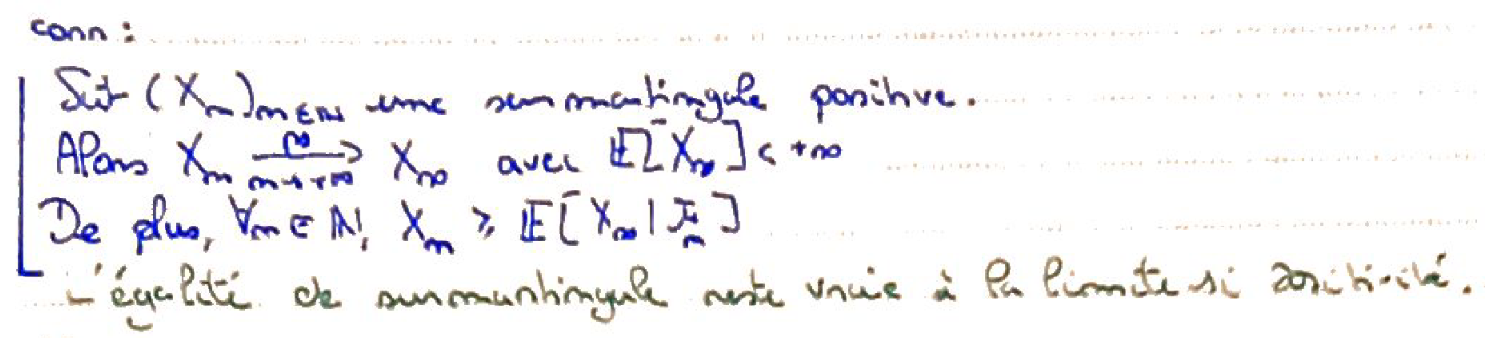 conn :
Soit (X_n)_{n∈ℕ} une surmartingale positive.
Alors X_n \xrightarrow[n→+∞]{} X_∞ avec 𝔼[X_∞] < +∞
De plus, ∀n ∈ ℕ, X_n ≥ 𝔼[X_∞ | ℱ_n]
L'égalité de surmartingale reste vraie à la limite si positivité.